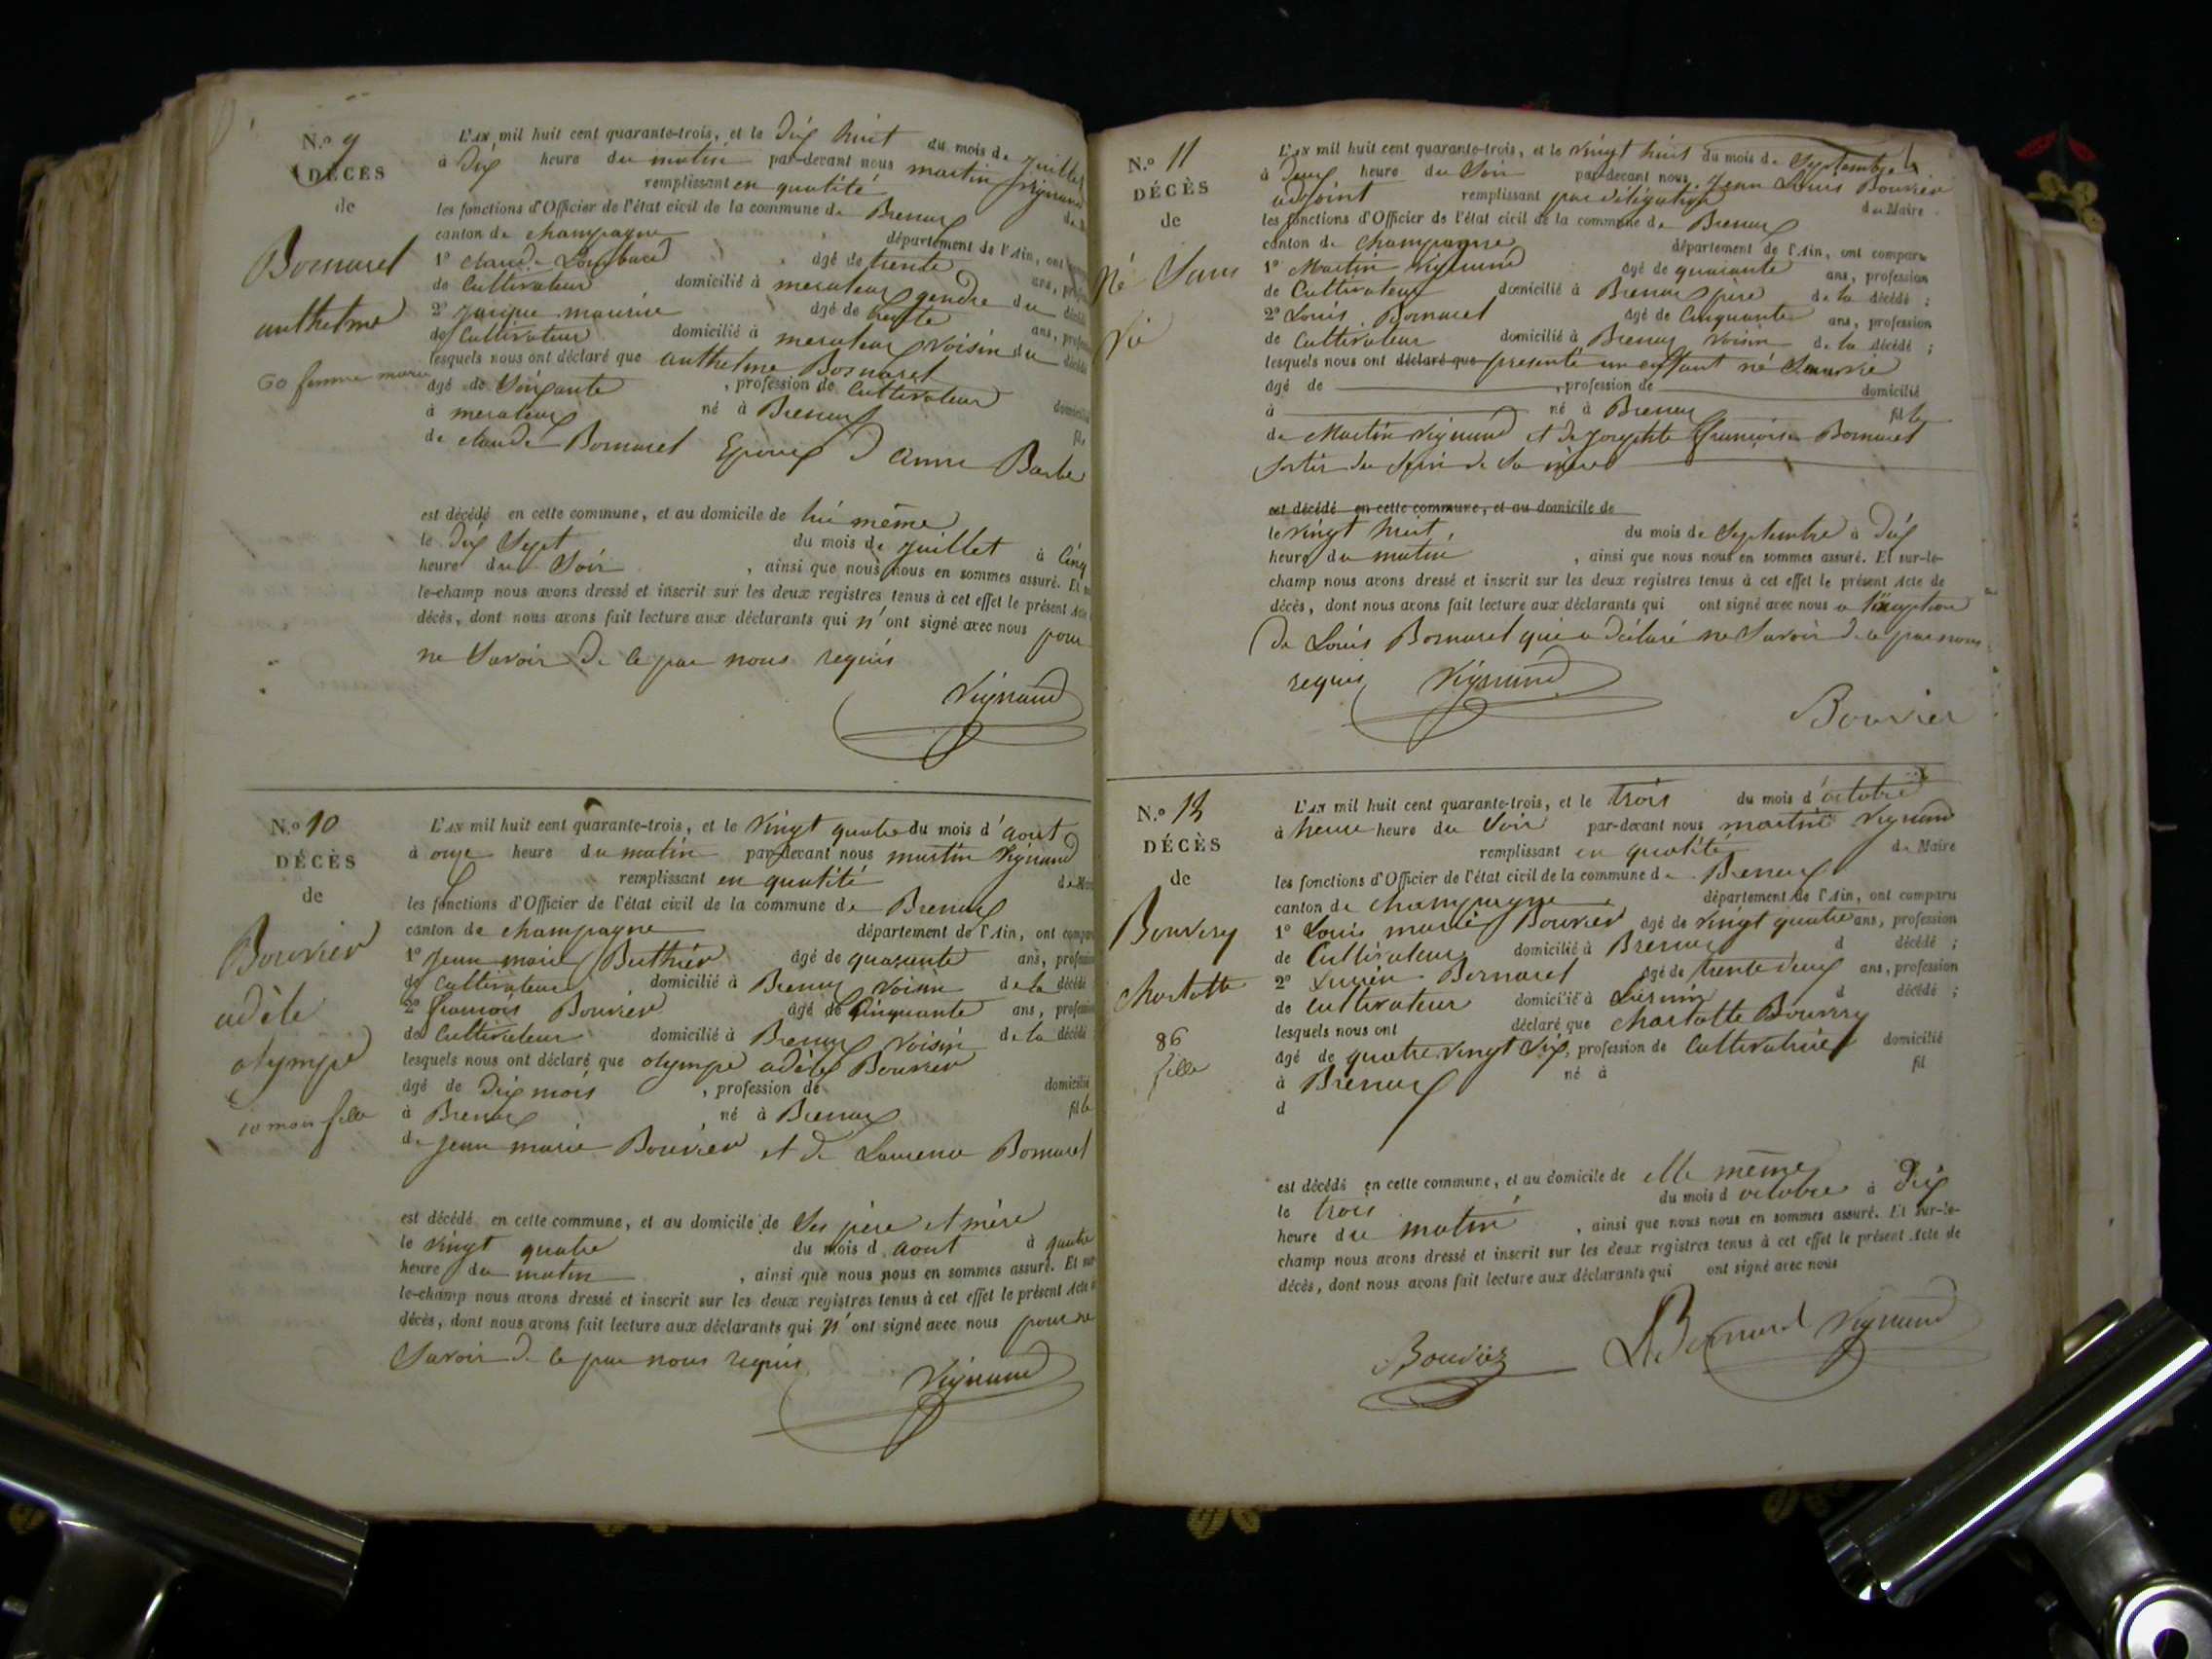 N.º 9
DÉCÈS
de
Bornarel
anthelme
60 femme
L'AN mil huit cent quarante-trois, et le Dix huit du mois de juillet
à Dix heure du matin par-devant nous martin Vignand
remplissant en qualité de
les fonctions d'Officier de l'état civil de la commune de Brenaz
canton de champagne département de l'Ain, ont
1º claude agé de trente ans,
de Cultivateur domicilié à meraleaz gendre du
2º maurice agé de trente ans,
de Cultivateur domicilié à meraleaz voisin du
lesquels nous ont déclaré que anthelme Bornarel
agé de Soixante , profession de Cultivateur
à meraleaz né à Brenaz fils
de claude Bornarel Epoux D anne Barbe
est décédé en cette commune, et au domicile de lui même
le Dix Sept du mois de juillet à Cinq
heure du Soir , ainsi que nous nous en sommes assuré. Et
le-champ nous avons dressé et inscrit sur les deux registres tenus à cet effet le présent Acte
décès, dont nous avons fait lecture aux déclarants qui n'ont signé avec nous pour
ne Savoir De ce par nous requis
Vignand
N.º 10
DÉCÈS
de
Bouvier
adèle
olympe
10 mois fille
L'AN mil huit cent quarante-trois, et le Vingt quatre du mois d'aout
à onze heure du matin par-devant nous martin Vignand
remplissant en qualité de
les fonctions d'Officier de l'état civil de la commune de Brenaz
canton de champagne département de l'Ain, ont
1º jean marie Berthier agé de quarante ans,
de Cultivateur domicilié à Brenaz voisin de la décédé
2º francois Bouvier agé de Cinquante ans,
de Cultivateur domicilié à Brenaz voisin de la décédé
lesquels nous ont déclaré que olympe adèle Bouvier
agé de Dix mois , profession de domicilié
à Brenaz né à Brenaz fille
de jean marie Bouvier et de Laurence Bornarel
est décédé en cette commune, et au domicile de Ses père et mère
le vingt quatre du mois d aout à quatre
heure du matin , ainsi que nous nous en sommes assuré. Et sur
le-champ nous avons dressé et inscrit sur les deux registres tenus à cet effet le présent Acte
décès, dont nous avons fait lecture aux déclarants qui n'ont signé avec nous pour ne
Savoir De ce par nous requis
Vignand
N.º 11
DÉCÈS
de
né Sans
Vie
L'AN mil huit cent quarante-trois, et le vingt huit du mois de Septembre
à Deux heure du Soir par-devant nous jean Louis Bouvier
adjoint remplissant par délégation du Maire
les fonctions d'Officier de l'état civil de la commune de Brenaz
canton de champagne département de l'Ain, ont comparu
1º Martin Vignand agé de quarante ans, profession
de Cultivateur domicilié à Brenaz père de la décédé ;
2º Louis Bornarel agé de Cinquante ans, profession
de Cultivateur domicilié à Brenaz voisin de la décédé ;
lesquels nous ont déclaré que presenté un enfant né Sans vie
agé de , profession de domicilié
à né à Brenaz fille
de Martin Vignand et de josephte françoise Bornarel
Sortir du Sein de Sa mère
est décédé en cette commune, et au domicile de
le vingt huit du mois de Septembre à Dix
heure du matin , ainsi que nous nous en sommes assuré. Et sur-le-
champ nous avons dressé et inscrit sur les deux registres tenus à cet effet le présent Acte de
décès, dont nous avons fait lecture aux déclarants qui ont signé avec nous a l'exception
de Louis Bornarel qui a déclaré ne Savoir de ce par nous
requis Vignand
Bouvier
N.º 13
DÉCÈS
de
Bouvery
charlotte
86
fille
L'AN mil huit cent quarante-trois, et le trois du mois d'octobre
à heure du Soir par-devant nous martin Vignand
remplissant en qualité de Maire
les fonctions d'Officier de l'état civil de la commune de Brenaz
canton de champagne département de l'Ain, ont comparu
1º Louis marie Bouvier agé de vingt quatre ans, profession
de Cultivateur domicilié à Brenaz d décédé ;
2º Lucien Bornarel agé de trente deux ans, profession
de cultivateur domicilié à d décédé ;
lesquels nous ont déclaré que charlotte Bouvery
agé de quatre vingt Six, profession de Cultivatrice domicilié
à Brenaz né à fil
d
est décédé en cette commune, et au domicile de elle même
le trois du mois d octobre à Dix
heure du matin , ainsi que nous nous en sommes assuré. Et sur-le-
champ nous avons dressé et inscrit sur les deux registres tenus à cet effet le présent Acte de
décès, dont nous avons fait lecture aux déclarants qui ont signé avec nous
Bouvier Vignand